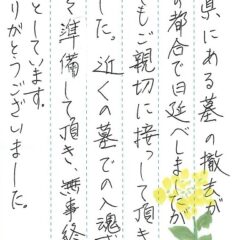 県にある墓の撤去が
の都合で日延べしましたが
もご親切に接して頂き
した。近くの墓での入魂
々準備して頂き、無事終
としています。
りがとうございました。